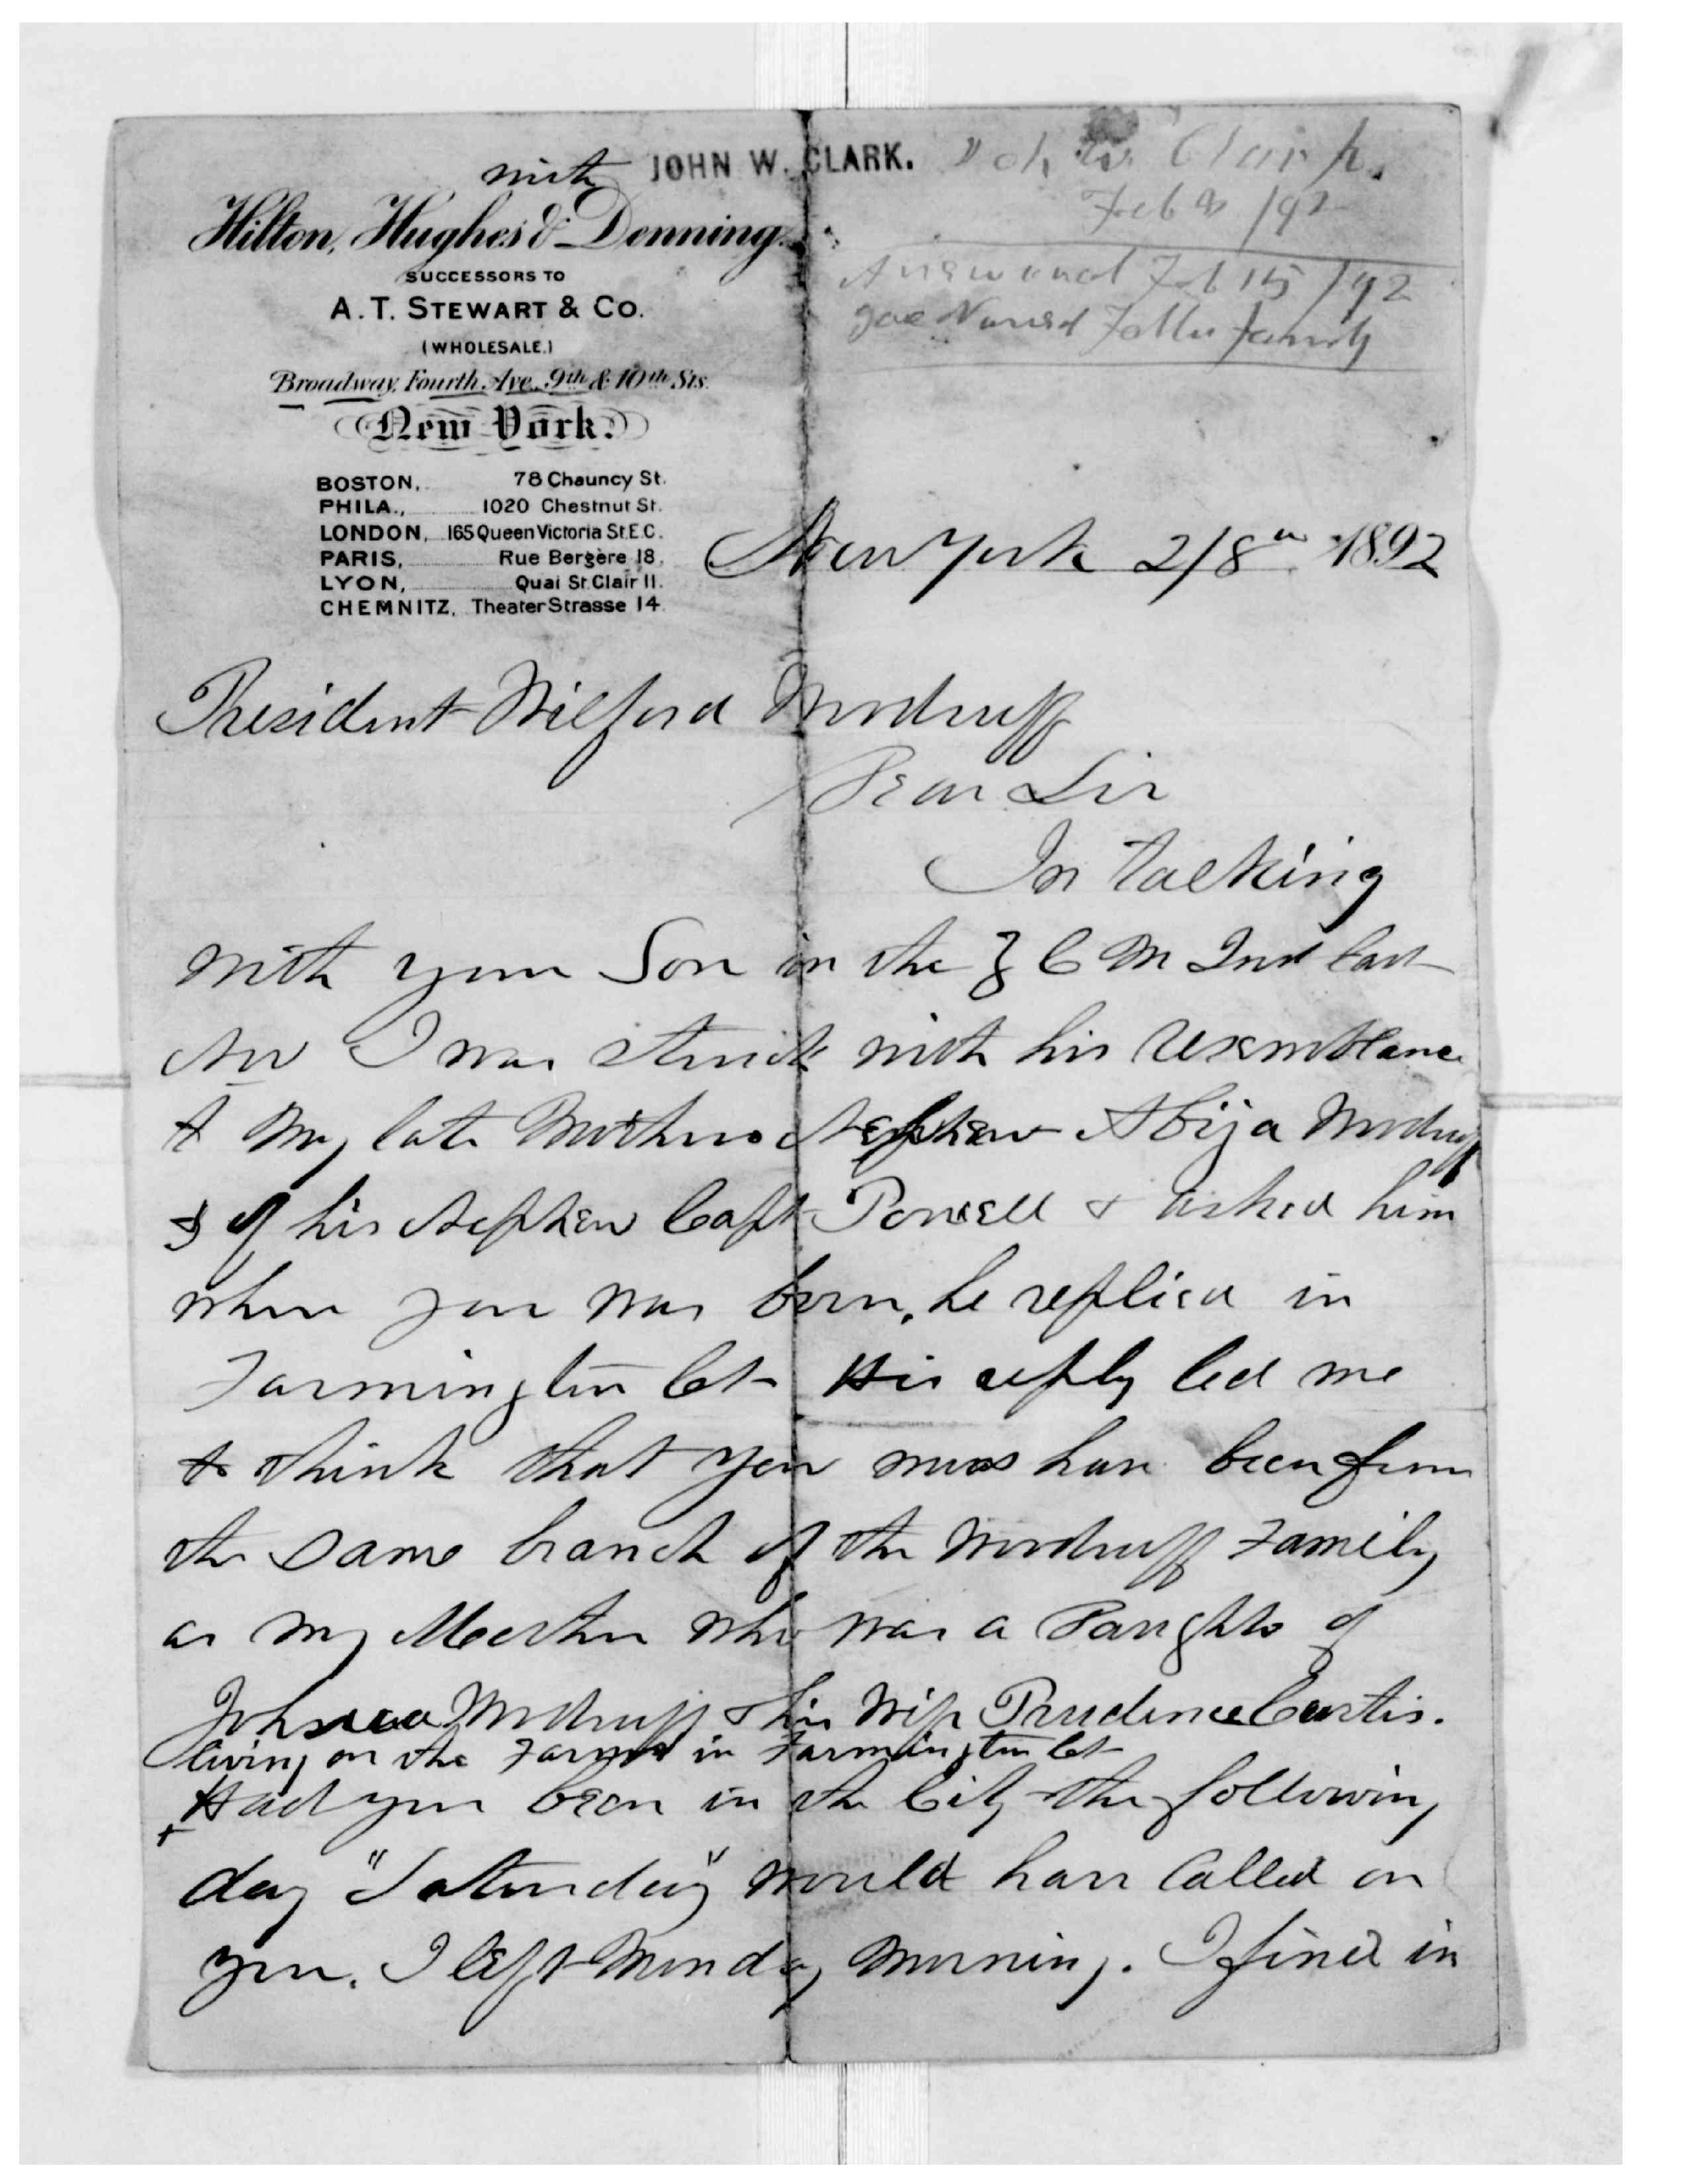 with JOHN W. CLARK.
Hilton, Hughes & Denning.
SUCCESSORS TO
A. T. STEWART & CO.
(WHOLESALE.)
Broadway, Fourth Ave., 9th & 10th Sts.
New York.
BOSTON, 78 Chauncy St.
PHILA., 1020 Chestnut St.
LONDON, 165 Queen Victoria St. E.C.
PARIS, Rue Bergère 18.
LYON, Quai St. Clair 11.
CHEMNITZ, Theater Strasse 14.
John W. Clark.
Feb 8 /92
Answered Feb 15 /92
Family
New York 2/8th 1892
President Wilford Woodruff
Dear Sir
In talking
with your Son in the Z C M Inst last
Nov I was struck with his resemblance
to my late Mothers Nephew Abija Woodruff
& of his Nephew Capt Powell & asked him
where you was born, he replied in
Farmington Ct His reply led me
to think that you must have been from
the same branch of the Woodruff Family
as my Mother who was a Daughter of
Johsua Woodruff & his Wife Prudence Curtis.
living on the Farm in Farmington Ct
+ Had you been in the City the following
day "Saturday" would have Called on
you. I left Monday Morning. I find in